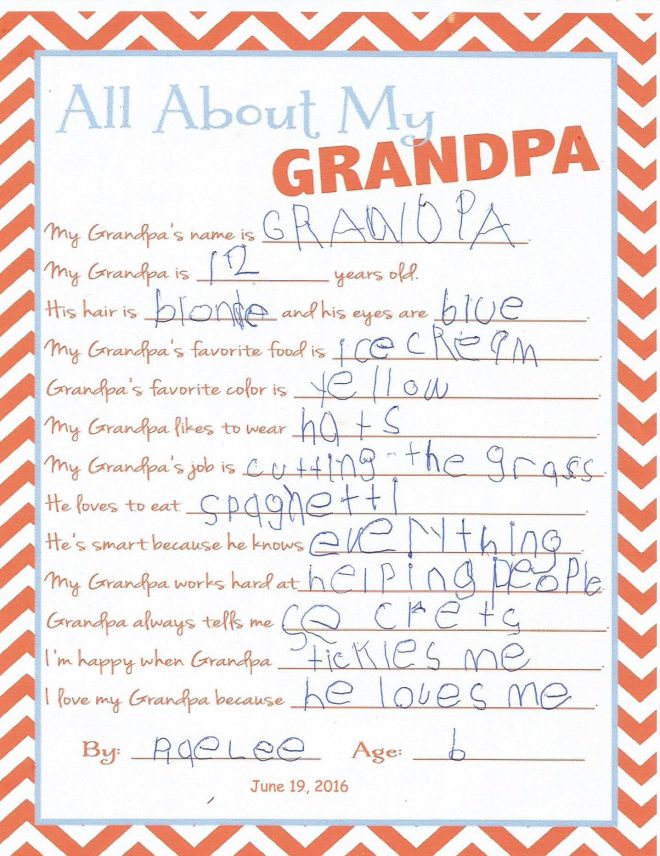 All About My
GRANDPA
My Grandpa's name is GRANDPA.
My Grandpa is 12 years old.
His hair is blonde and his eyes are blue.
My Grandpa's favorite food is ice cReam.
Grandpa's favorite color is yellow.
My Grandpa likes to wear hats.
My Grandpa's job is cutting the grass.
He loves to eat spaghetti.
He's smart because he knows everything.
My Grandpa works hard at helping people.
Grandpa always tells me secrets.
I'm happy when Grandpa tickles me.
I love my Grandpa because he loves me.
By: AdeLee Age: 6
June 19, 2016